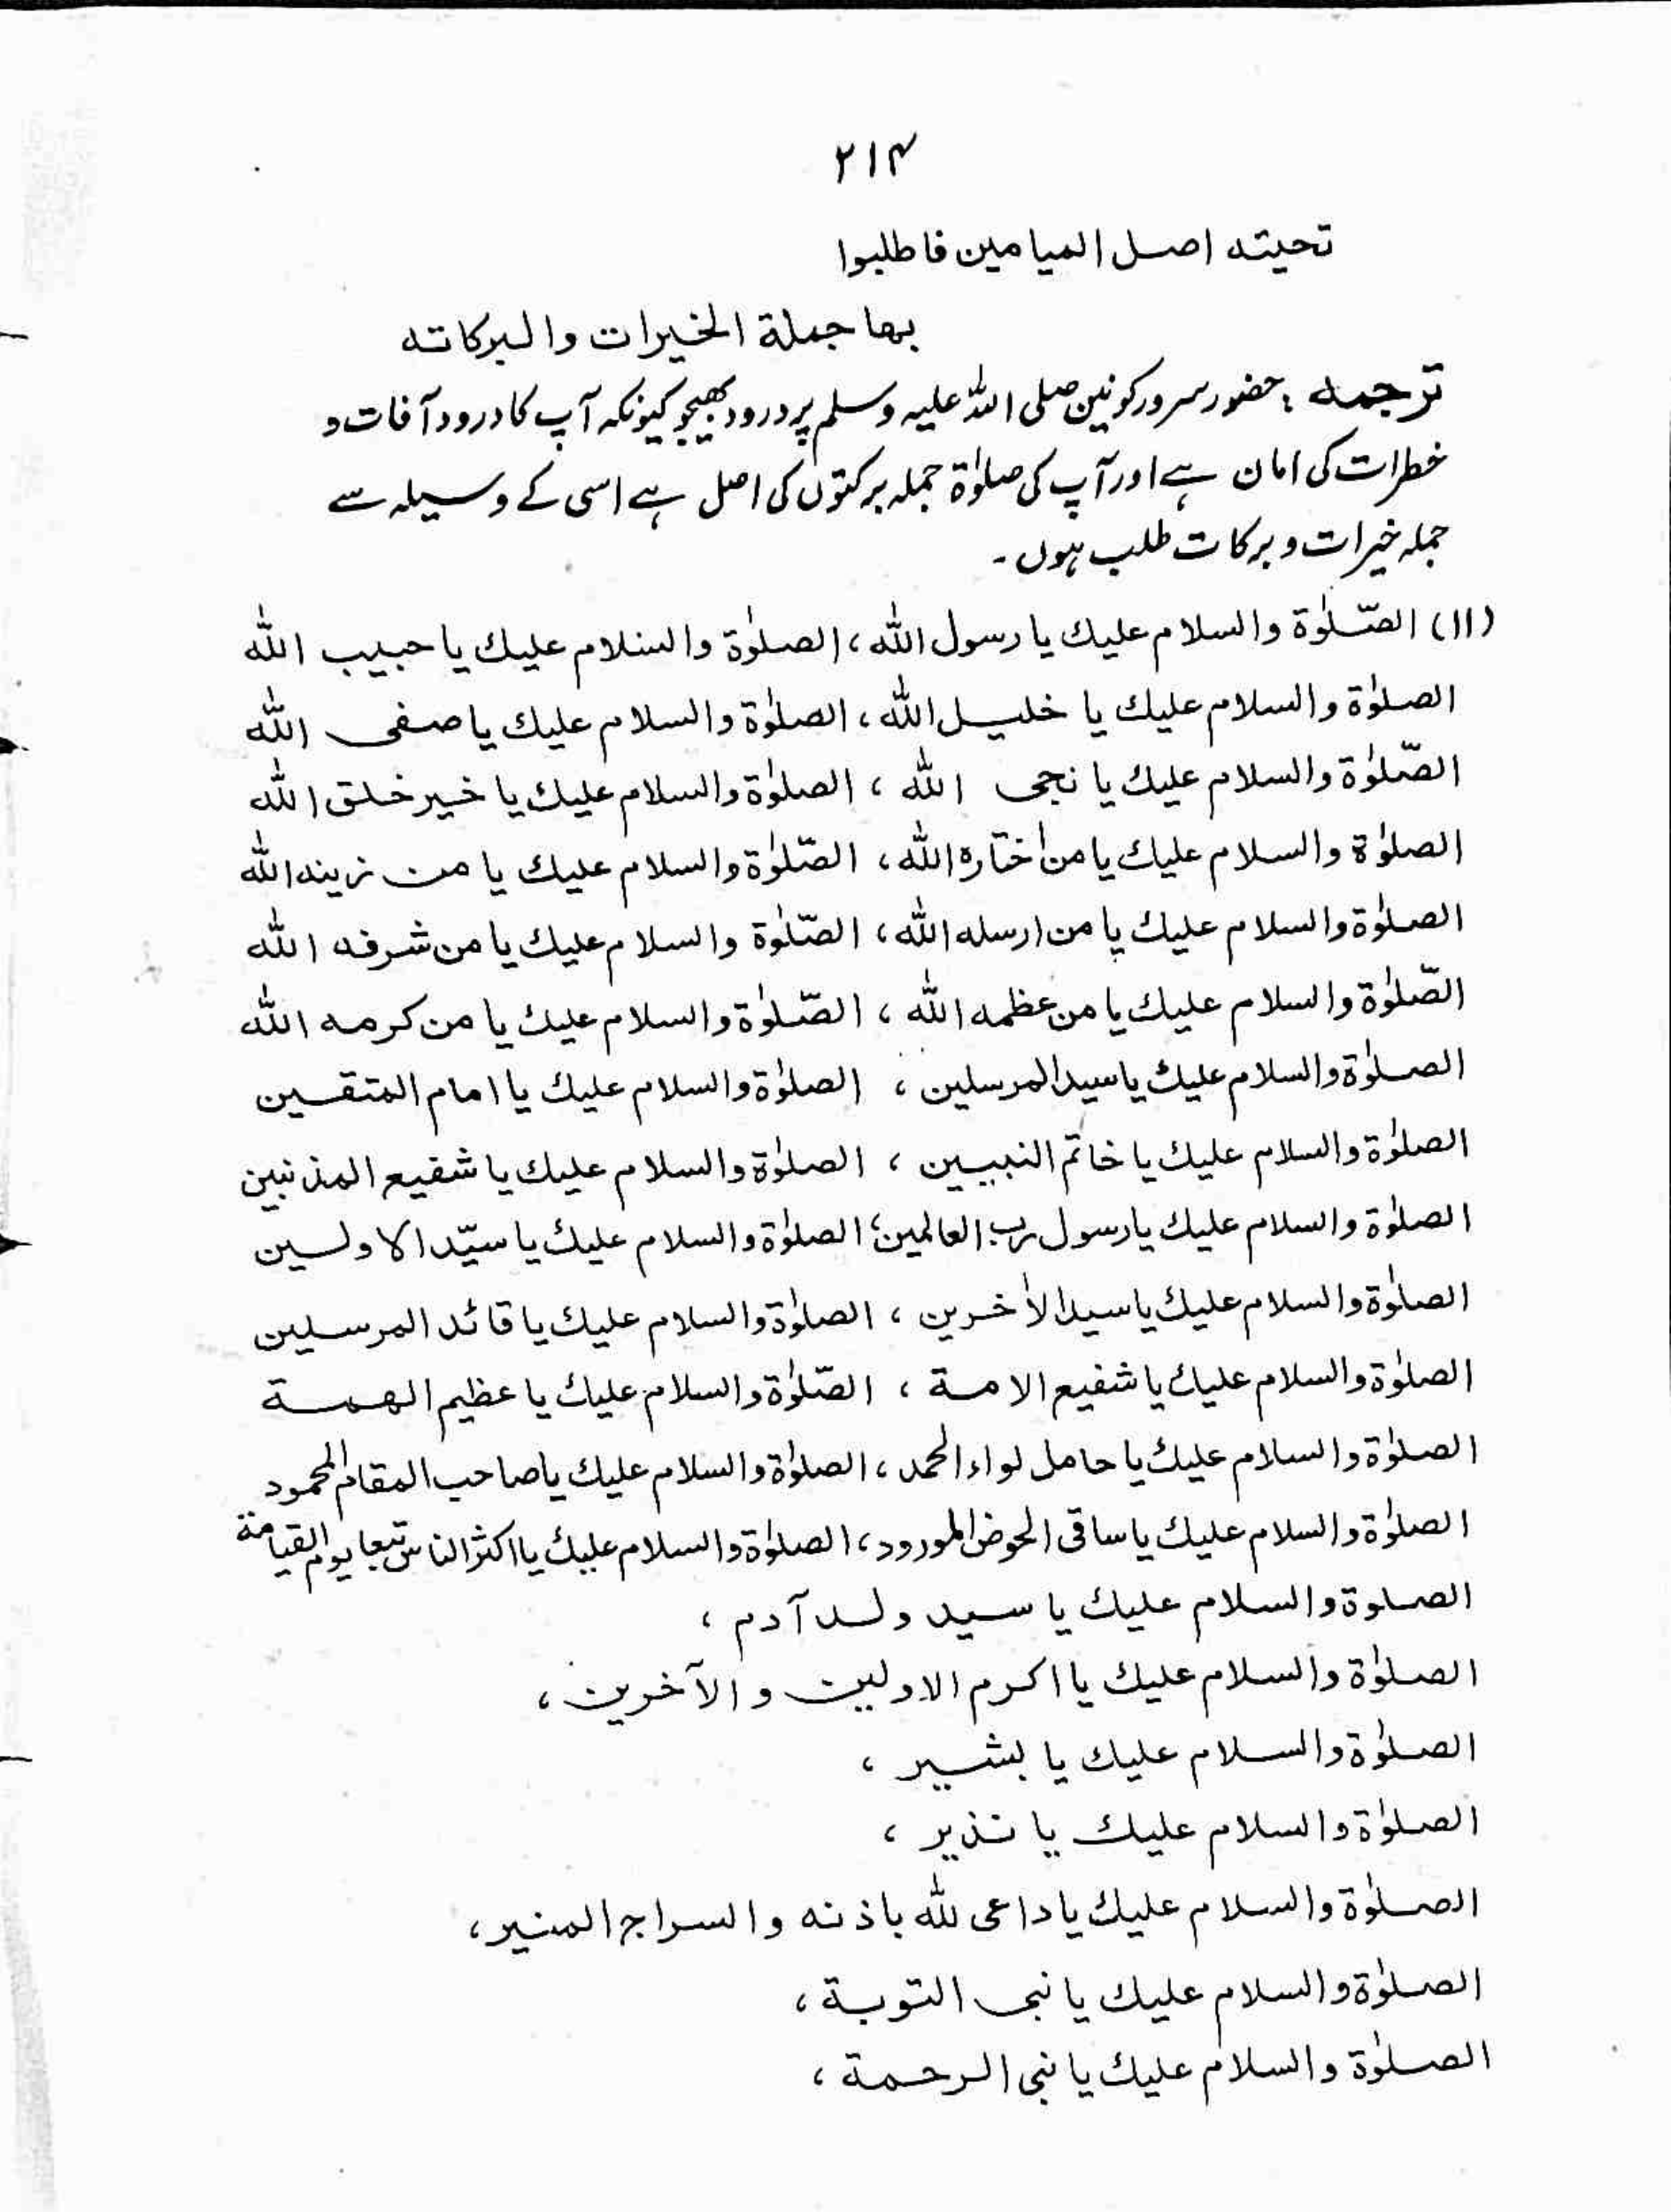 ۲۱۴
تحیتہ اصل المیامین فاطلبوا
بھا جملة الخیرات والبرکاتہ
ترجمہ: حضور سرور کونین صلی اللہ علیہ وسلم پر درود بھیجو کیونکہ آپ کا درود آفات و
خطرات کی امان ہے اور آپ کی صلوٰۃ جملہ برکتوں کی اصل ہے اسی کے وسیلہ سے
جملہ خیرات و برکات طلب ہوں۔
(۱۱) الصّلوٰة والسلام علیك یا رسول اللّٰه، الصلوٰة والسلام علیك یا حبیب اللّٰه
الصلوٰة والسلام علیك یا خلیل اللّٰه، الصلوٰة والسلام علیك یا صفی اللّٰه
الصّلوٰة والسلام علیك یا نجی اللّٰه، الصلوٰة والسلام علیك یا خیر خلق اللّٰه
الصلوٰة والسلام علیك یا من اختاره اللّٰه، الصّلوٰة والسلام علیك یا من زینه اللّٰه
الصلوٰة والسلام علیك یا من ارسله اللّٰه، الصّلوٰة والسلام علیك یا من شرفه اللّٰه
الصّلوٰة والسلام علیك یا من عظمه اللّٰه، الصّلوٰة والسلام علیك یا من کرمه اللّٰه
الصلوٰة والسلام علیك یا سید المرسلین، الصلوٰة والسلام علیك یا امام المتقین
الصلوٰة والسلام علیك یا خاتم النبیین، الصلوٰة والسلام علیك یا شفیع المذنبین
الصلوٰة والسلام علیك یا رسول رب العالمین، الصلوٰة والسلام علیك یا سیّد الاولین
الصلوٰة والسلام علیك یا سید الاٰخرین، الصلوٰة والسلام علیك یا قائد المرسلین
الصلوٰة والسلام علیك یا شفیع الامة، الصّلوٰة والسلام علیك یا عظیم الهمة
الصلوٰة والسلام علیك یا حامل لواء الحمد، الصلوٰة والسلام علیك یا صاحب المقام المحمود
الصلوٰة والسلام علیك یا ساقی الحوض المورود، الصلوٰة والسلام علیك یا اکثر الناس تبعا یوم القیامة
الصلوة والسلام علیك یا سید ولد آدم،
الصلوٰة والسلام علیك یا اکرم الاولین والآخرین،
الصلوٰة والسلام علیك یا بشیر،
الصلوٰة والسلام علیك یا نذیر،
الصلوٰة والسلام علیك یا داعی للّٰه باذنه والسراج المنیر،
الصلوٰة والسلام علیك یا نبی التوبة،
الصلوٰة والسلام علیك یا نبی الرحمة،